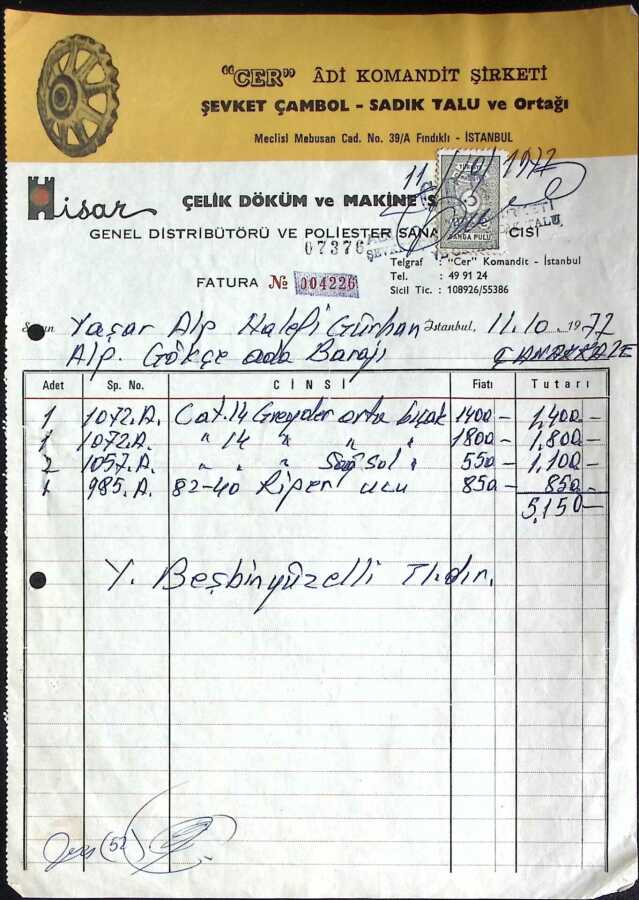 "CER" ÂDİ KOMANDİT ŞİRKETİ
ŞEVKET ÇAMBOL - SADIK TALU ve Ortağı
Meclisi Mebusan Cad. No. 39/A Fındıklı - İSTANBUL
11/10/1972
Hisar ÇELİK DÖKÜM ve MAKİNE S
GENEL DİSTRİBÜTÖRÜ VE POLİESTER SANA CİSİ
07376
DAMGA PULU
Telgraf : "Cer" Komandit - İstanbul
FATURA № 004226
Tel. : 49 91 24
Sicil Tic. : 108926/55386
Yaşar Alp Halefi Gürhan İstanbul, 11.10.1972
Alp. Gökçe ada Barajı ÇANAKKALE
Adet Sp. No. CİNSİ Fiatı Tutarı
1 1072.A. Cat.14 Greyder orta bıçak 1400- 1,400-
1 1072.A. " 14 " " " 1800- 1,800-
2 1057.A. " " " Sağ Sol " 550- 1,100-
1 985.A. 82-40 Riper ucu 850- 850-
5,150-
Y. Beşbinyüzelli Tl.dır.
(52)